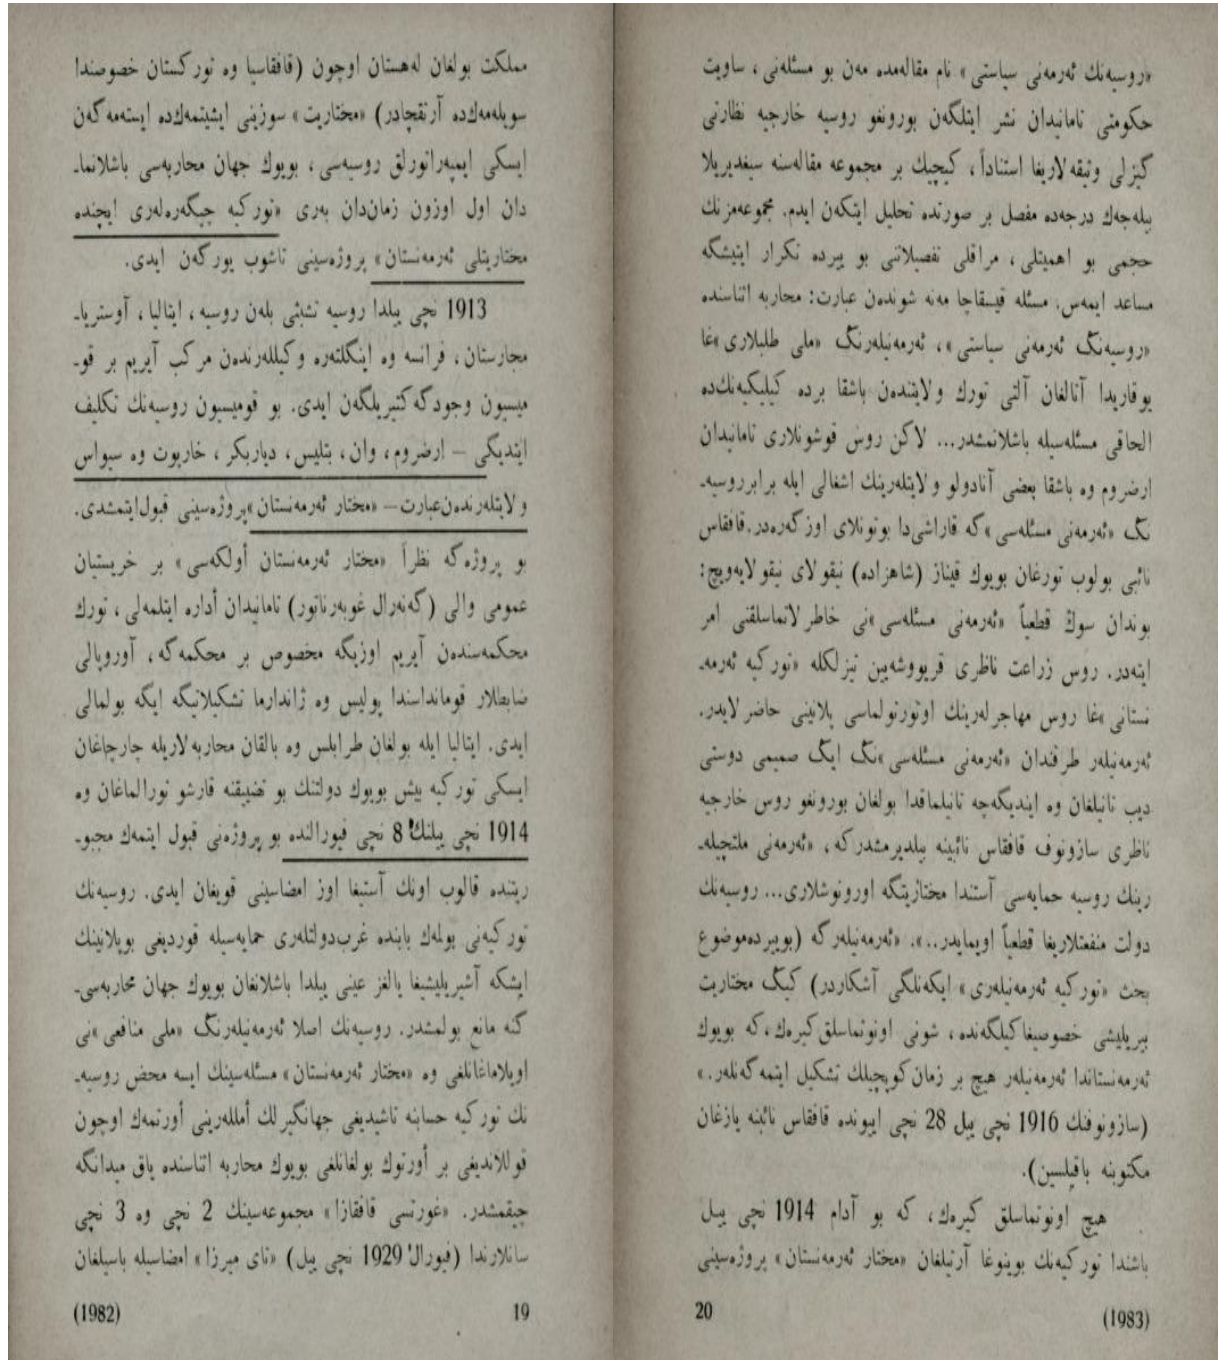 مملكت بولغان لەهستان اوچون (قافقاسيا وه توركستان خصوصندا
سويلەمەكده آرتقچادر) «مختاريت» سوزينى ايشيتمەكده ايستەمەگەن
ايسكى ايمپەراتورلق روسيەسى، بويوك جهان محاربەسى باشلانما-
دان اول اوزون زمان‌دان بەرى «توركيه جيگەرەلەرى ايچنده
مختاريتلى ئەرمەنستان» پروژەسينى تاشوب يورگەن ايدى.
1913 نچى ييلدا روسيه تشبثى بلەن روسيه، ايتاليا، آوستريا-
مجارستان، فرانسه وه اينگلتەره وكيللەرندەن مركب آيريم بر قو-
ميسيون وجودگه كتيريلگەن ايدى. بو قوميسيون روسيەنك تكليف
ايتديگى — ارضروم، وان، بتليس، دياربكر، خارپوت وه سيواس
ولايتلەرندەن عبارت — «مختار ئەرمەنستان» پروژەسينى قبول ايتمشدى.
بو پروژەگه نظراً «مختار ئەرمەنستان أولكەسى» بر خريستيان
عمومى والى (گەنەرال غوبەرناتور) تامانيدان أداره ايتلمەلى، تورك
محكمەسندەن آيريم اوزيگه مخصوص بر محكمەگه، آوروپالى
ضابطلار قومانداسندا پوليس وه ژاندارما تشكيلاتيگه ايگه بولمالى
ايدى. ايتاليا ايله بولغان طرابلس وه بالقان محاربەلاريله چارچاغان
ايسكى توركيه بيش بويوك دولتنك بو تضييقنه قارشو تورالماغان وه
1914 نچى ييلنك 8 نچى فيورالنده بو پروژەنى قبول ايتمەك مجبو-
ريتنده قالوب اونك آستيغا اوز امضاسينى قويغان ايدى. روسيەنك
توركيەنى بولمەك بابنده غرب دولتلەرى حمايەسيله قورديغى بوپلانينك
ايشكه آشيريليشيغا يالغز عينى ييلدا باشلانغان بويوك جهان محاربەسى-
گنه مانع بولمشدر. روسيەنك اصلا ئەرمەنيلەرنگ «ملى منافعى»نى
اويلاماغانلغى وه «مختار ئەرمەنستان» مسئلەسينك ايسه محض روسيه-
نك توركيه حسابنه تاشيديغى جهانگيرلك أمللەرينى أورتمەك اوچون
قوللانديغى بر أورتوك بولغانلغى بويوك محاربه اثناسنده ياق ميدانگه
چيقمشدر. «غورتسى قافقازا» مجموعەسينك 2 نچى وه 3 نچى
سانلارندا (فيورال 1929 نچى ييل) «تاى ميرزا» امضاسيله باسيلغان
19
(1982)
«روسيەنك ئەرمەنى سياستى» نام مقالەمده مەن بو مسئلەنى، ساويت
حكومتى تامانيدان نشر ايتلگەن بورونغو روسيه خارجيه نظارتى
گيزلى وثيقەلاريغا استناداً، كيچيك بر مجموعه مقالەسنه سيغديريلا
بيلەجەك درجەده مفصل بر صورتده تحليل ايتكەن ايدم. مجموعەمزنك
حجمى بو اهميتلى، مراقلى تفصيلاتنى بو ييرده تكرار ايتيشگه
مساعد ايمەس. مسئله قيسقاچا مەنه شوندەن عبارت: محاربه اثناسنده
«روسيەنگ ئەرمەنى سياستى»، ئەرمەنيلەرنگ «ملى طلبلارى»غا
يوقاريدا آتالغان آلتى تورك ولايتندەن باشقا برده كيليكيەنك‌ده
الحاقى مسئلەسيله باشلانمشدر... لاكن روس قوشونلارى تامانيدان
ارضروم وه باشقا بعضى آنادولو ولايتلەرينك اشغالى ايله برابر روسيه-
نگ «ئەرمەنى مسئلەسى»گه قاراشى‌دا بوتونلاى اوزگەرەدر. قافقاس
نائبى بولوب تورغان بويوك قيناز (شاهزاده) نيقولاى نيقولايەويچ:
بوندان سوڭ قطعياً «ئەرمەنى مسئلەسى»نى خاطرلاتماسلقنى امر
ايتەدر. روس زراعت ناظرى قريووشەيين تيزلكله «توركيه ئەرمه-
نستانى»غا روس مهاجرلەرينك اوتورتولماسى پلانينى حاضرلايدر.
ئەرمەنيلەر طرفندان «ئەرمەنى مسئلەسى»نگ ايگ صميمى دوستى
ديب تانيلغان وه اينديگەچه تانيلماقدا بولغان بورونغو روس خارجيه
ناظرى سازونوف قافقاس نائبينه بيلديرمشدركه، «ئەرمەنى ملتچيله-
رينك روسيه حمايەسى آستندا مختاريتگه اورونوشلارى... روسيەنك
دولت منفعتلاريغا قطعياً اويمايدر..». «ئەرمەنيلەرگه (بوييرده‌موضوع
بحث «توركيه ئەرمەنيلەرى» ايكەنلگى آشكاردر) كيگ مختاريت
بيريليشى خصوصيغا كيلگەنده، شونى اونوتماسلق كيرەك، كه بويوك
ئەرمەنستاندا ئەرمەنيلەر هيچ بر زمان كوپچيلك تشكيل ايتمەگەنلەر.»
(سازونوفنك 1916 نچى ييل 28 نچى ايونده قافقاس نائبنه يازغان
مكتوبنه باقيلسين).
هيچ اونوتماسلق كيرەك، كه بو آدام 1914 نچى ييل
باشندا توركيەنك بوينوغا آرتيلغان «مختار ئەرمەنستان» پروژەسينى
20
(1983)